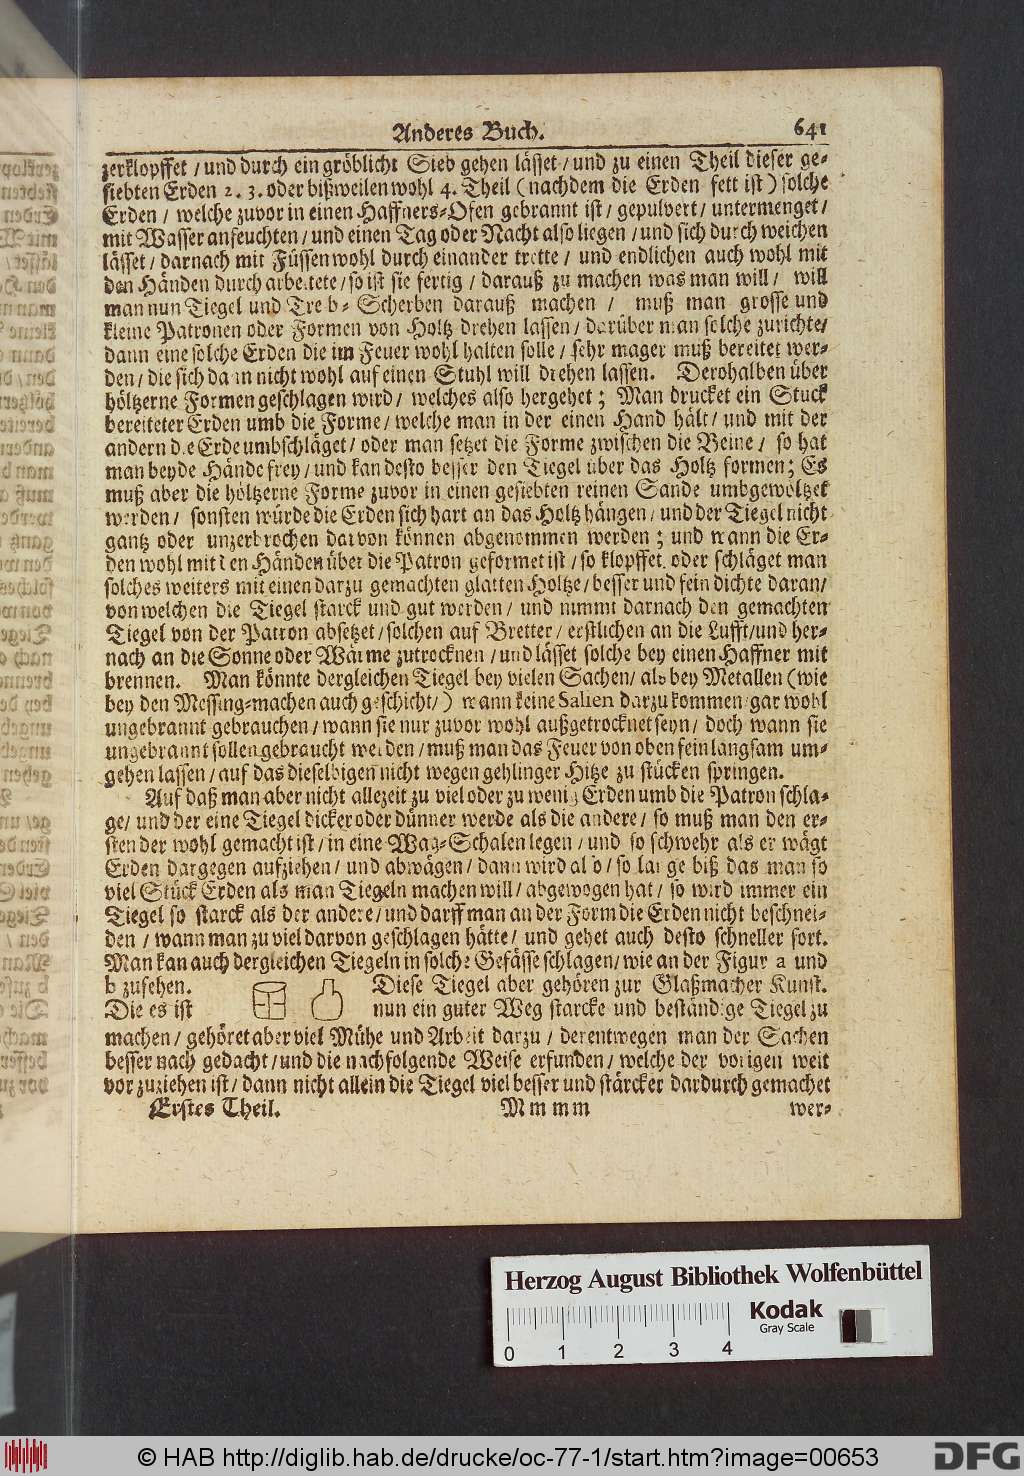 Anderes Buch. 641
zerklopffet / und durch ein gröblicht Sieb gehen lässet / und zu einen Theil dieser ge-
siebten Erden 2. 3. oder bißweilen wohl 4. Theil ( nachdem die Erden fett ist ) solche
Erden / welche zuvor in einen Haffners-Ofen gebrannt ist / gepulvert / untermenget /
mit Wasser anfeuchten / und einen Tag oder Nacht also liegen / und sich durch weichen
lässet / darnach mit Füssen wohl durch einander trette / und endlichen auch wohl mit
den Händen durch arbeitete / so ist sie fertig / darauß zu machen was man will / will
man nun Tiegel und Treib-Scherben darauß machen / muß man grosse und
kleine Patronen oder Formen von Holtz drehen lassen / darüber man solche zurichte /
dann eine solche Erden die im Feuer wohl halten solle / sehr mager muß bereitet wer-
den / die sich dann nicht wohl auf einen Stuhl will drehen lassen. Derohalben über
höltzerne Formen geschlagen wird / welches also hergehet ; Man drucket ein Stuck
bereiteter Erden umb die Forme / welche man in der einen Hand hält / und mit der
andern die Erde umbschläget / oder man setzet die Forme zwischen die Beine / so hat
man beyde Hände frey / und kan desto besser den Tiegel über das Holtz formen ; Es
muß aber die höltzerne Forme zuvor in einen gesiebten reinen Sande umbgewöltzet
werden / sonsten würde die Erden sich hart an das Holtz hängen / und der Tiegel nicht
gantz oder unzerbrochen darvon können abgenommen werden ; und wann die Er-
den wohl mit den Händen über die Patron geformet ist / so klopffet oder schläget man
solches weiters mit einen darzu gemachten glatten Holtze / besser und fein dichte daran /
von welchen die Tiegel starck und gut werden / und nimmt darnach den gemachten
Tiegel von der Patron absetzet / solchen auf Bretter / erstlichen an die Lufft / und her-
nach an die Sonne oder Wärme zutrocknen / und lässet solche bey einen Haffner mit
brennen. Man könnte dergleichen Tiegel bey vielen Sachen / als bey Metallen ( wie
bey den Messing-machen auch geschicht / ) wann keine Salien darzu kommen / gar wohl
ungebrannt gebrauchen / wann sie nur zuvor wohl außgetrocknet seyn / doch wann sie
ungebrannt sollen gebraucht werden / muß man das Feuer von oben fein langsam um-
gehen lassen / auf das dieselbigen nicht wegen gehlinger Hitze zu stücken springen.
Auf daß man aber nicht allezeit zu viel oder zu wenig Erden umb die Patron schla-
ge / und der eine Tiegel dicker oder dünner werde als die andere / so muß man den er-
sten der wohl gemacht ist / in eine Wag-Schalen legen / und so schwehr als er wägt
Erden dargegen aufziehen / und abwägen / dann wird also / so lange biß das man so
viel Stück Erden als man Tiegeln machen will / abgewogen hat / so wird immer ein
Tiegel so starck als der andere / und darff man an der Form die Erden nicht beschnei-
den / wann man zu viel darvon geschlagen hätte / und gehet auch desto schneller fort.
Man kan auch dergleichen Tiegeln in solche Gefässe schlagen / wie an der Figur a und
b zusehen. Diese Tiegel aber gehören zur Glaßmacher Kunst.
Die es ist nun ein guter Weg starcke und beständige Tiegel zu
machen / gehöret aber viel Mühe und Arbeit darzu / derentwegen man der Sachen
besser nach gedacht / und die nachfolgende Weise erfunden / welche der vorigen weit
vorzuziehen ist / dann nicht allein die Tiegel viel besser und stärcker dardurch gemachet
Erstes Theil. Mmmm wer-
Herzog August Bibliothek Wolfenbüttel
Kodak
Gray Scale
0 1 2 3 4
© HAB http://diglib.hab.de/drucke/oc-77-1/start.htm?image=00653
DFG